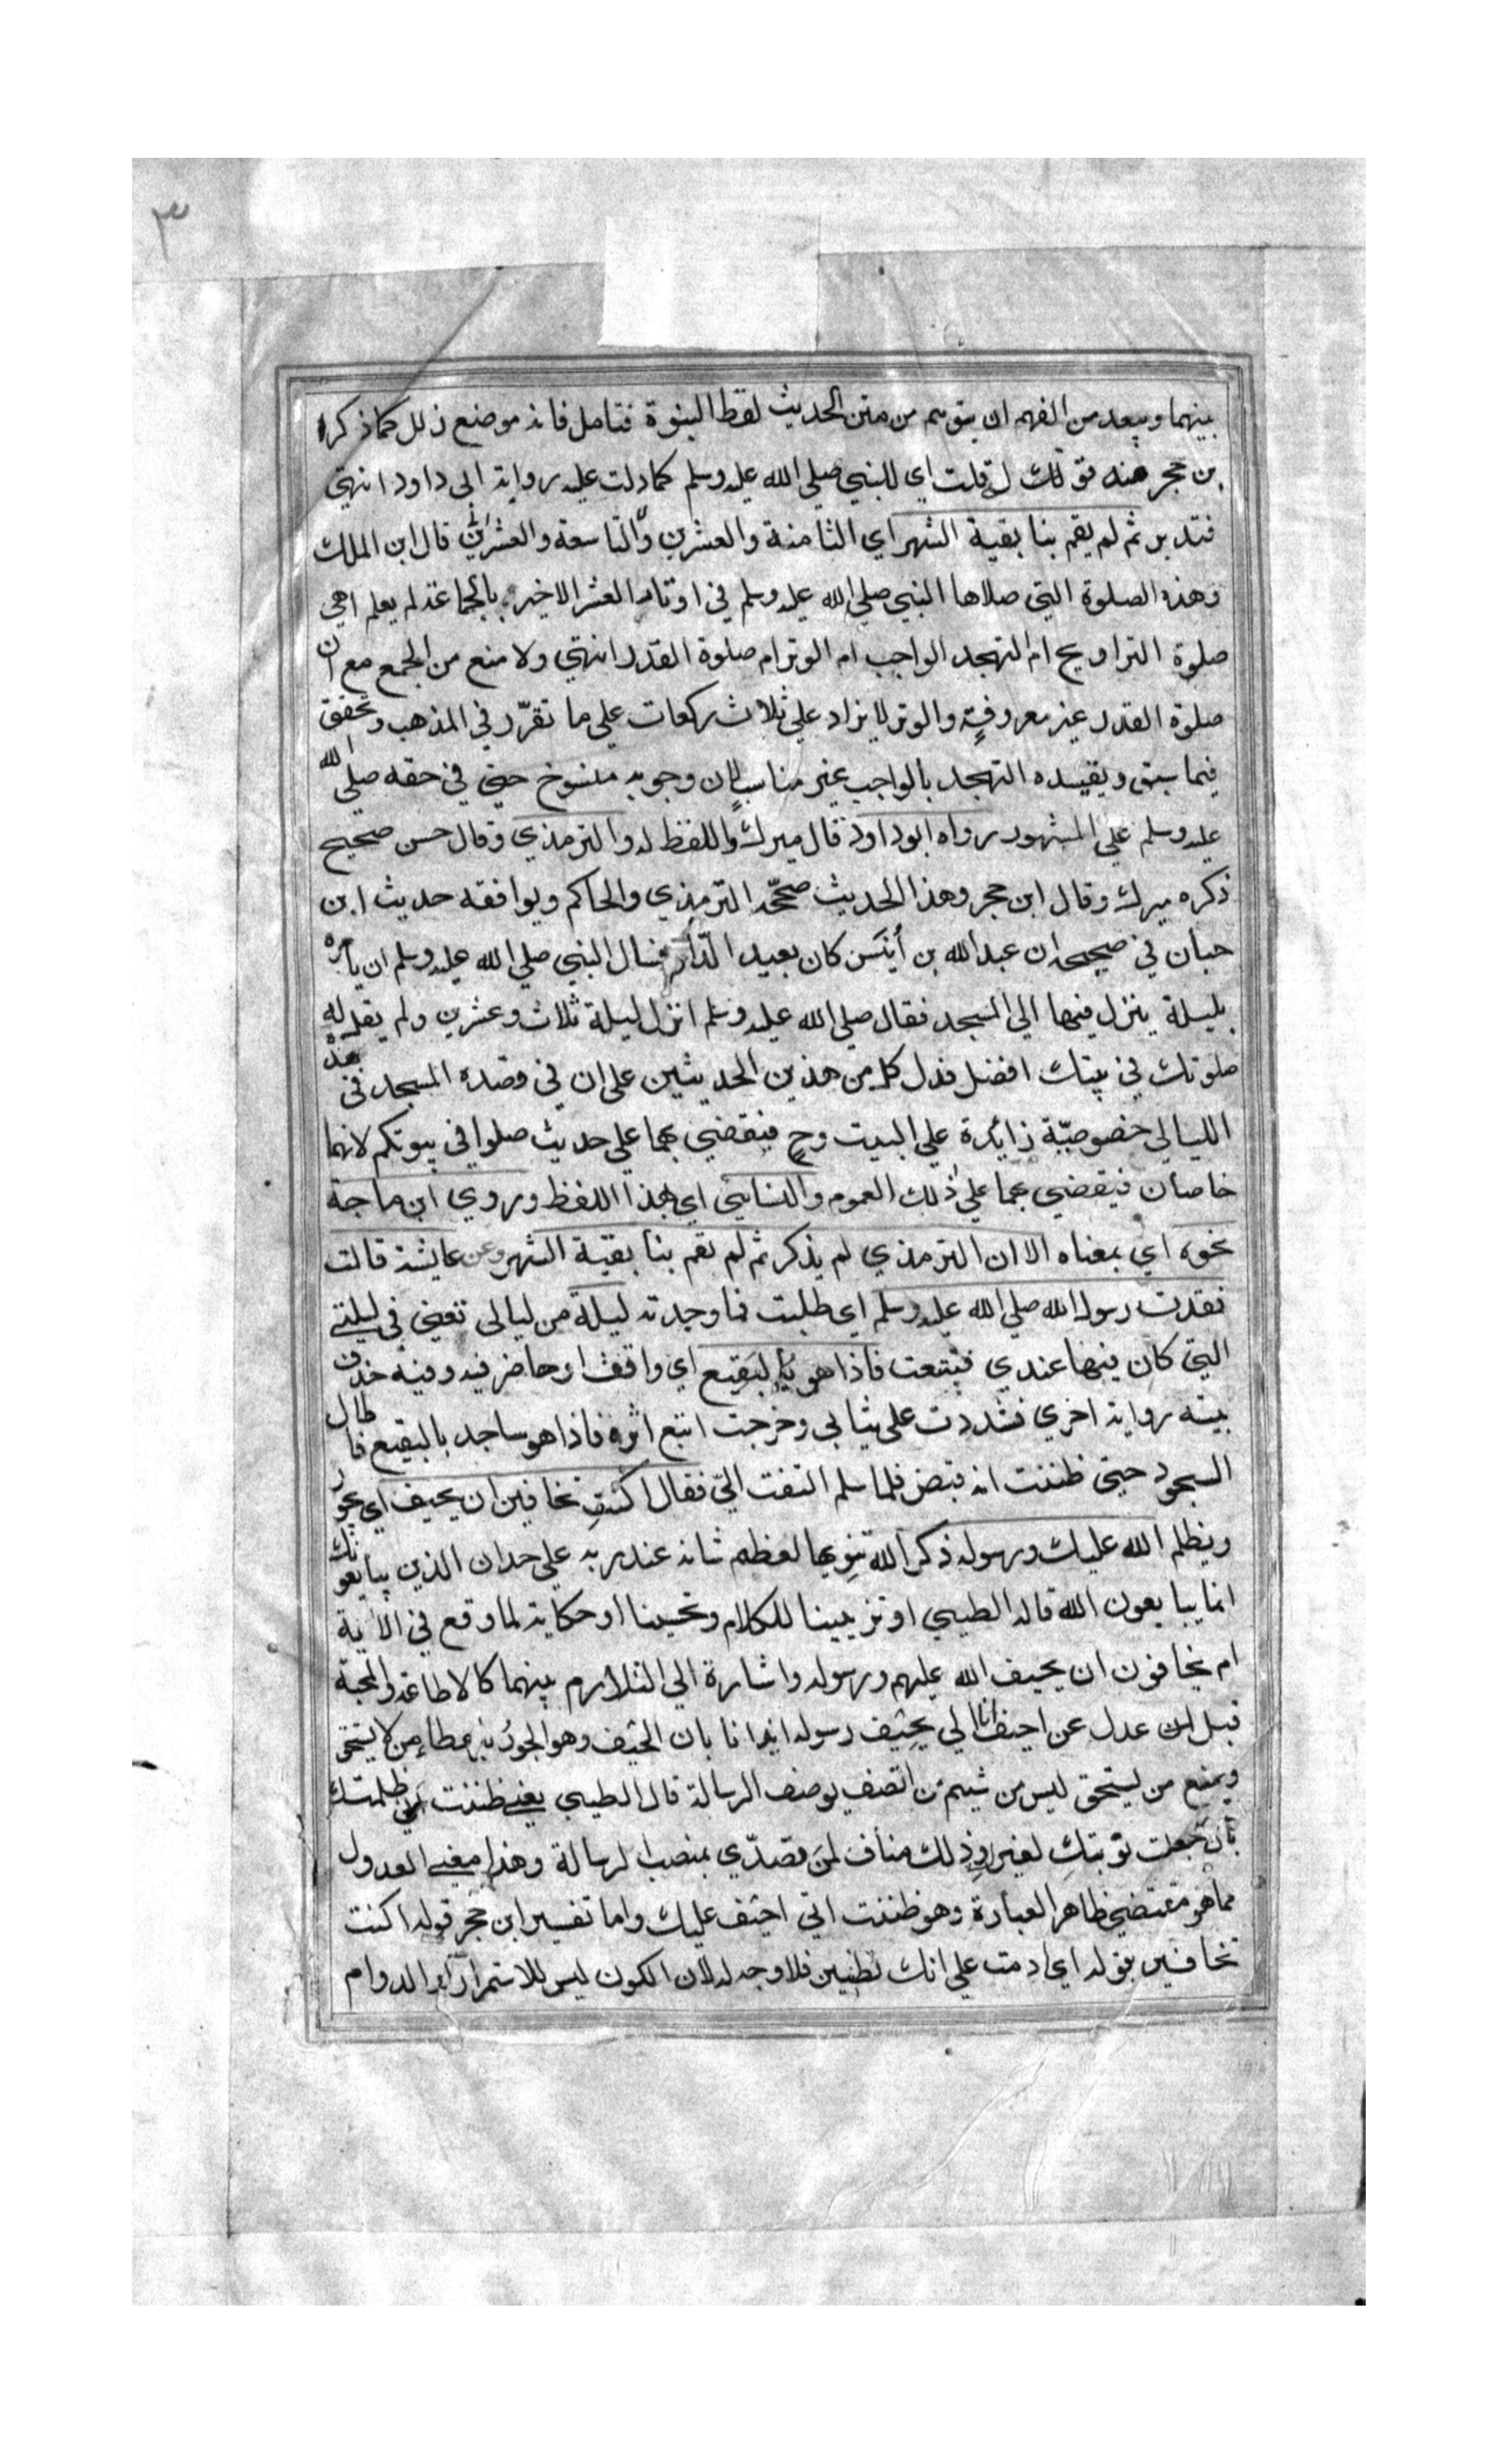 ٣
بينهما ويبعد من الفهم ان يتوهم من متن الحديث لفظ البنوة فتامل فانه موضع زلل كما ذكرا
بن حجر هنه قوله قلت اي للنبي صلي الله عليه وسلم كما دلت عليه رواية ابي داود انتهي
فتدبر ثم لم يقم بنا بقية الشهر اي الثامنة والعشرين والتاسعة والعشرين قال ابن الملك
وهذه الصلوة التي صلاها النبي صلي الله عليه وسلم في اوتار العشر الاخير بالجماعة لم يعلم اهي
صلوة التراويح ام التهجد الواجب ام الوتر ام صلوة القدر انتهي ولا منع من الجمع مع ان
صلوة القدر غير معروفة والوتر لا يزاد علي ثلاث ركعات علي ما تقرّر في المذهب وتحقق
فيما سبق وتقييده التهجد بالواجب غير مناسب لان وجوبه منسوخ حتي في حقه صلي الله
عليه وسلم علي المشهور رواه ابوداود قال ميرك واللفظ له والترمذي وقال حسن صحيح
ذكره ميرك وقال ابن حجر وهذا الحديث صححّه الترمذي والحاكم ويوافقه حديث ابن
حبان في صحيحه ان عبدالله بن أنيس كان بعيد الدار فسال النبي صلي الله عليه وسلم ان يأمره
بليلة ينزل فيها الي المسجد فقال صلي الله عليه وسلم انزل ليلة ثلاث وعشرين ولم يقل له
صلوتك في بيتك افضل فدل كل من هذين الحديثين علي ان في قصده المسجد في هذه
الليالي خصوصيّة زايدة علي البيت وح فيقضي بهما علي حديث صلوا في بيوتكم لانهما
خاصان فيقضي بهما علي ذلك العموم والنسايي اي بهذا اللفظ وروي ابن ماجة
نحوه اي بمعناه الا ان الترمذي لم يذكر ثم لم يقم بنا بقية الشهر وعن عايشة قالت
فقدت رسول الله صلي الله عليه وسلم اي طلبت فما وجدته ليلة من ليالي تعني في ليلتي
التي كان فيها عندي فتتبعت فاذا هو بالبَقِيع اي واقف او حاضر فيه وفيه حذف
بينه رواية اخري فشددت علي ثيابي وخرجت اتبع اثره فاذا هو ساجد بالبقيع فاطال
السجود حتي ظننت انه قبض فلما سلم التفت اليّ فقال اكنتِ تخافين ان يحيف اي يجور
ويظلم الله عليك ورسوله ذكر الله تنويها لعظم شانه عند ربه علي حد ان الذين يبايعونك
انما يبايعون الله قاله الطيبي او تزيينا للكلام وتحسينا او حكاية لما وقع في الاية
ام يخافون ان يحيف الله عليهم ورسوله واشارة الي التلازم بينهما كالاطاعة والمحبة
قيل عدل عن احيف انا الي يحيف رسوله ايذانا بان الحيف وهو الجور باعطاء من لا يستحق
ويمنع من يستحق ليس من شيم من اتصف بوصف الرسالة قال الطيبي يعني ظننت اني ظلمتك
بان جعلت نوبتكِ لغيرك وذلك مناف لمن تصدّي بمنصب الرسالة وهذا معني العدول
عما هو مقتضي ظاهر العبارة وهو ظننت اني احيف عليك واما تفسير ابن حجر قوله اكنت
تخافين بقوله اي ادمت علي انك تظنين فلا وجه له لان الكون ليس للاستمرار والدوام